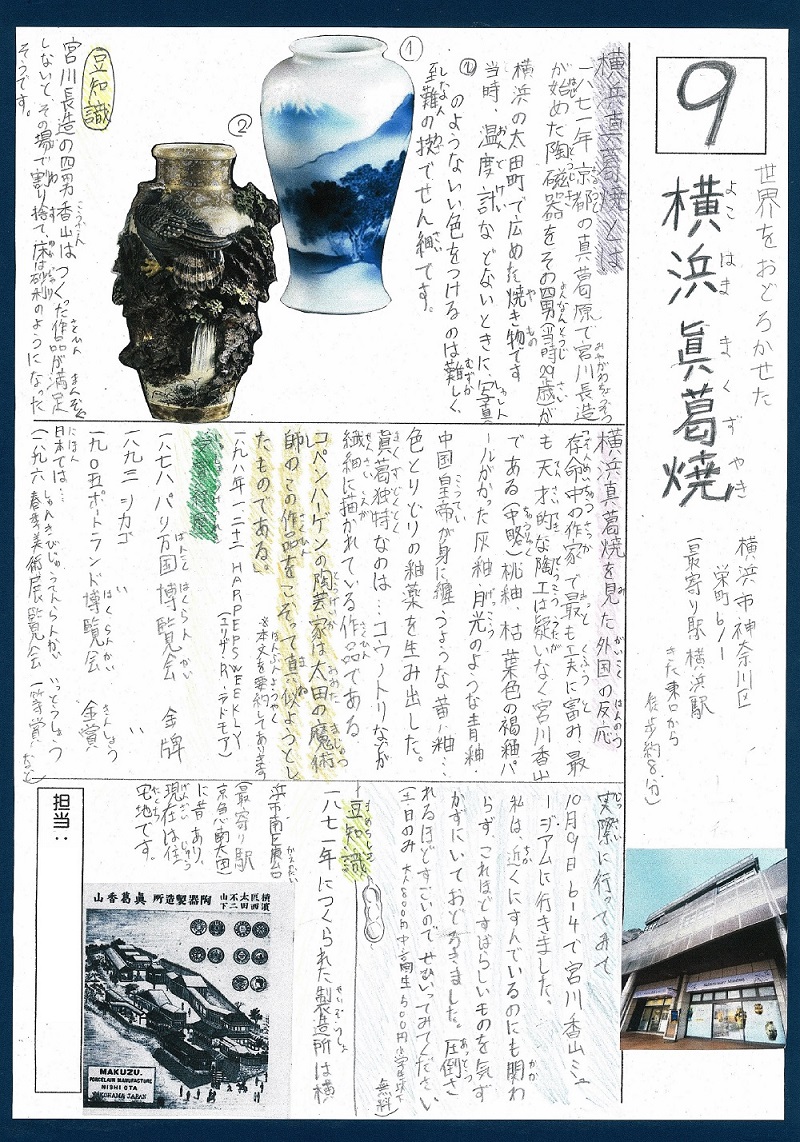 9
世界をおどろかせた
横浜眞葛焼
よこはままくずやき
横浜市神奈川区
栄町6-1
(最寄り駅 横浜駅
きた東口から
徒歩約8分)
横浜眞葛焼とは
一八七一年 京都の真葛原で宮川長造
が始めた陶磁器をその四男(当時29歳)が
横浜の太田町で広めた焼き物です
当時、温度計などないときに、写真
①のようないい色をつけるのは難しく
至難の技でせん細です。
①
②
豆知識
宮川長造の四男香山はつくった作品が満足
しないと、その場で割り捨て、床は砂利のようになった
そうです。
横浜真葛焼を見た外国の反応
存命中の作家で最も工夫に富み、最
も天才的な陶工は疑いなく宮川香山
である(中略)桃釉 枯葉色の褐釉パ
ールがかった灰釉 月光のような青釉・
中国皇帝が身に纏うような黄釉…
色とりどりの釉薬を生み出した。
眞葛独特なのは…コウノトリなどが
繊細に描かれている作品である
コペンハーゲンの陶芸家は太田の魔術
師のこの作品をこぞって真似ようとし
たものである。
HARPEPSWEEKLY
(エリザ・R・シドモア)
一八七八 パリ万国博覧会 金牌
一八九三 シカゴ 〃 〃
一九〇五 ポートランド博覧会 金賞
日本では…
春季美術展覧会 一等賞 など
実際に行ってみて
10月9日 6-4で宮川香山ミュ
ージアムに行きました。
私は、近くにすんでいるのにも関わ
らず、これほどすばらしいものを気ず
かずにいておどろきました。圧倒さ
れるほどすごいのでぜひいってみてください
(土日のみ 大人800円 中高生500円 小学生以下
無料)
豆知識
一八七一年につくられた製造所は横
浜市南区庚台
(最寄り駅
京急南太田)
に昔あり、
現在は住
宅地です。
担当:
横濱
西太田
不二山下
陶器製造所 眞葛香山
MAKUZU.
PORCELAIN MANUFACTURE
NISHI OTA
YOKOHAMA JAPAN